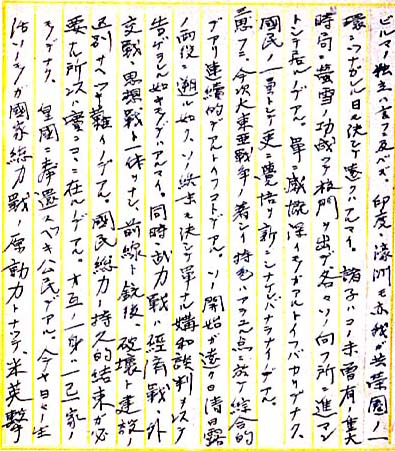 ビルマノ独立ハ言フニ及バズ、印度、濠洲モ亦我ガ共栄圏ノ一
環トツナガル日モ決シテ遠クハアルマイ。諸子ハコノ未曽有ノ重大
時局ニ螢雪ノ功成ツテ校門ヲ出デ各々ソノ向フ所ニ進マン
トシテ居ルノデアル。単ニ感慨深イモノガアルトイフバカリデナク、
国民ノ一員トシテ更ニ覚悟ヲ新ニシナケレバナラナイノデアル。
思フニ今次大東亜戦争ノ著シイ特色ハアラユル点ニ於テ綜合的
デアリ連続的デアルトイフコトデアル。ソノ開始ガ遠ク日清日露
ノ両役ニ遡ル如ク、ソノ終末モ決シテ単ナル媾和談判ヲ以テ
告ゲラルル如キモノデハアルマイ。同時ニ武力戦ハ経済戦、外
交戦、思想戦ト一体ヲナシ、前線ト銃後、破壊ト建設ノ
区別サヘツケ難イノデアル。国民総力ノ持久的結束ガ必
要ナ所以ハ実ニココニ在ルノデアル。オ互ノ一身ハ一己一家ノ
モノデナク、皇国ニ奉還スベキ公民デアル。今ヤ日々ノ生
活ソノモノガ国家総力戦ノ原動力トナツテ米英撃